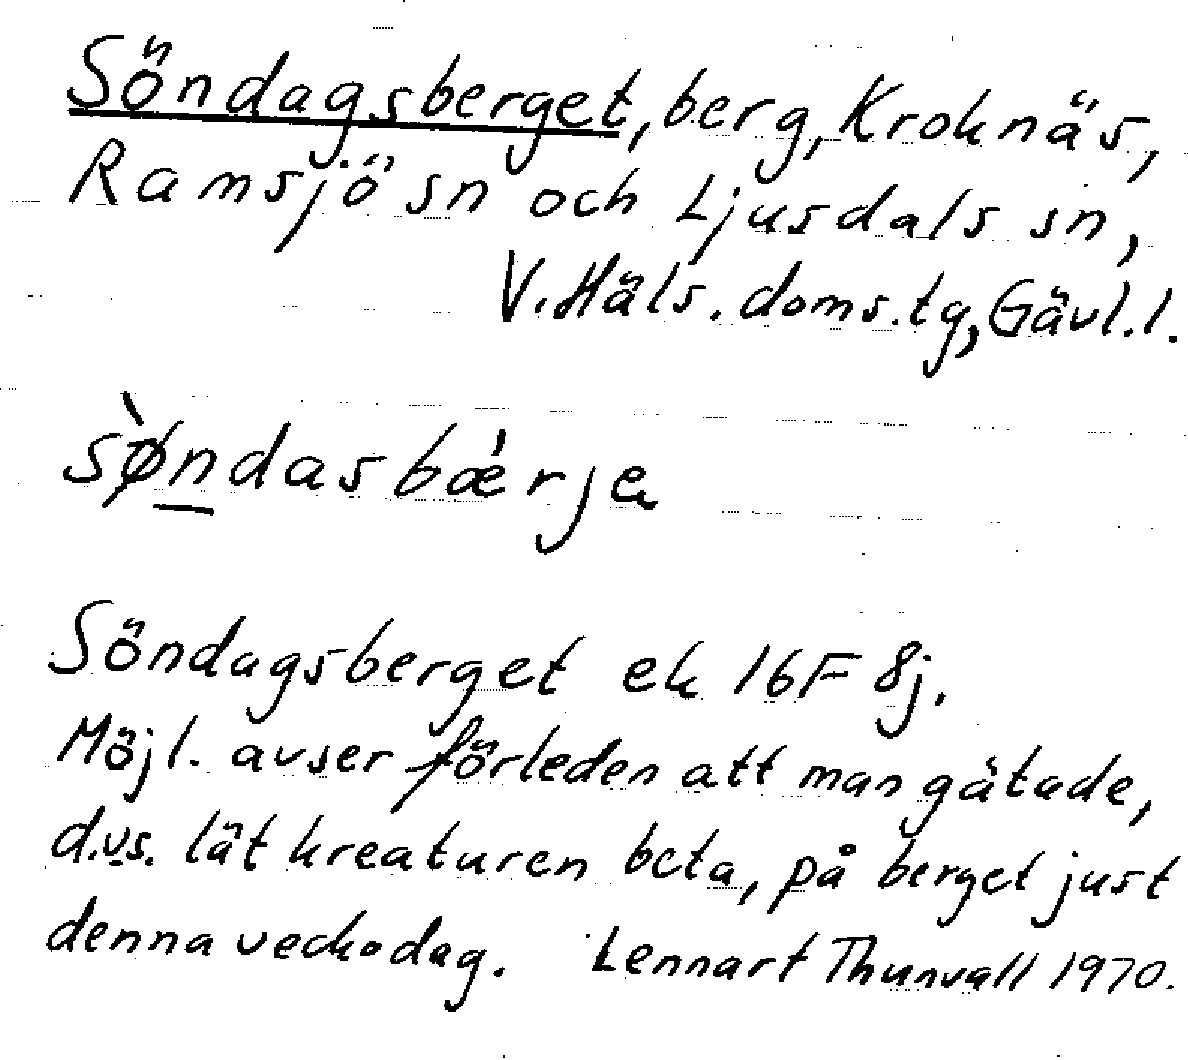 Söndagsberget, berg, Kroknäs,
Ramsjö sn och Ljusdals sn,
V. Häls. doms.tg, Gävl.l.
sø̀ndasbǽrje
Söndagsberget ek 16F 8j.
Möjl. avser förleden att man gätade,
d.v.s. lät kreaturen beta, på berget just
denna veckodag. Lennart Thunvall 1970.